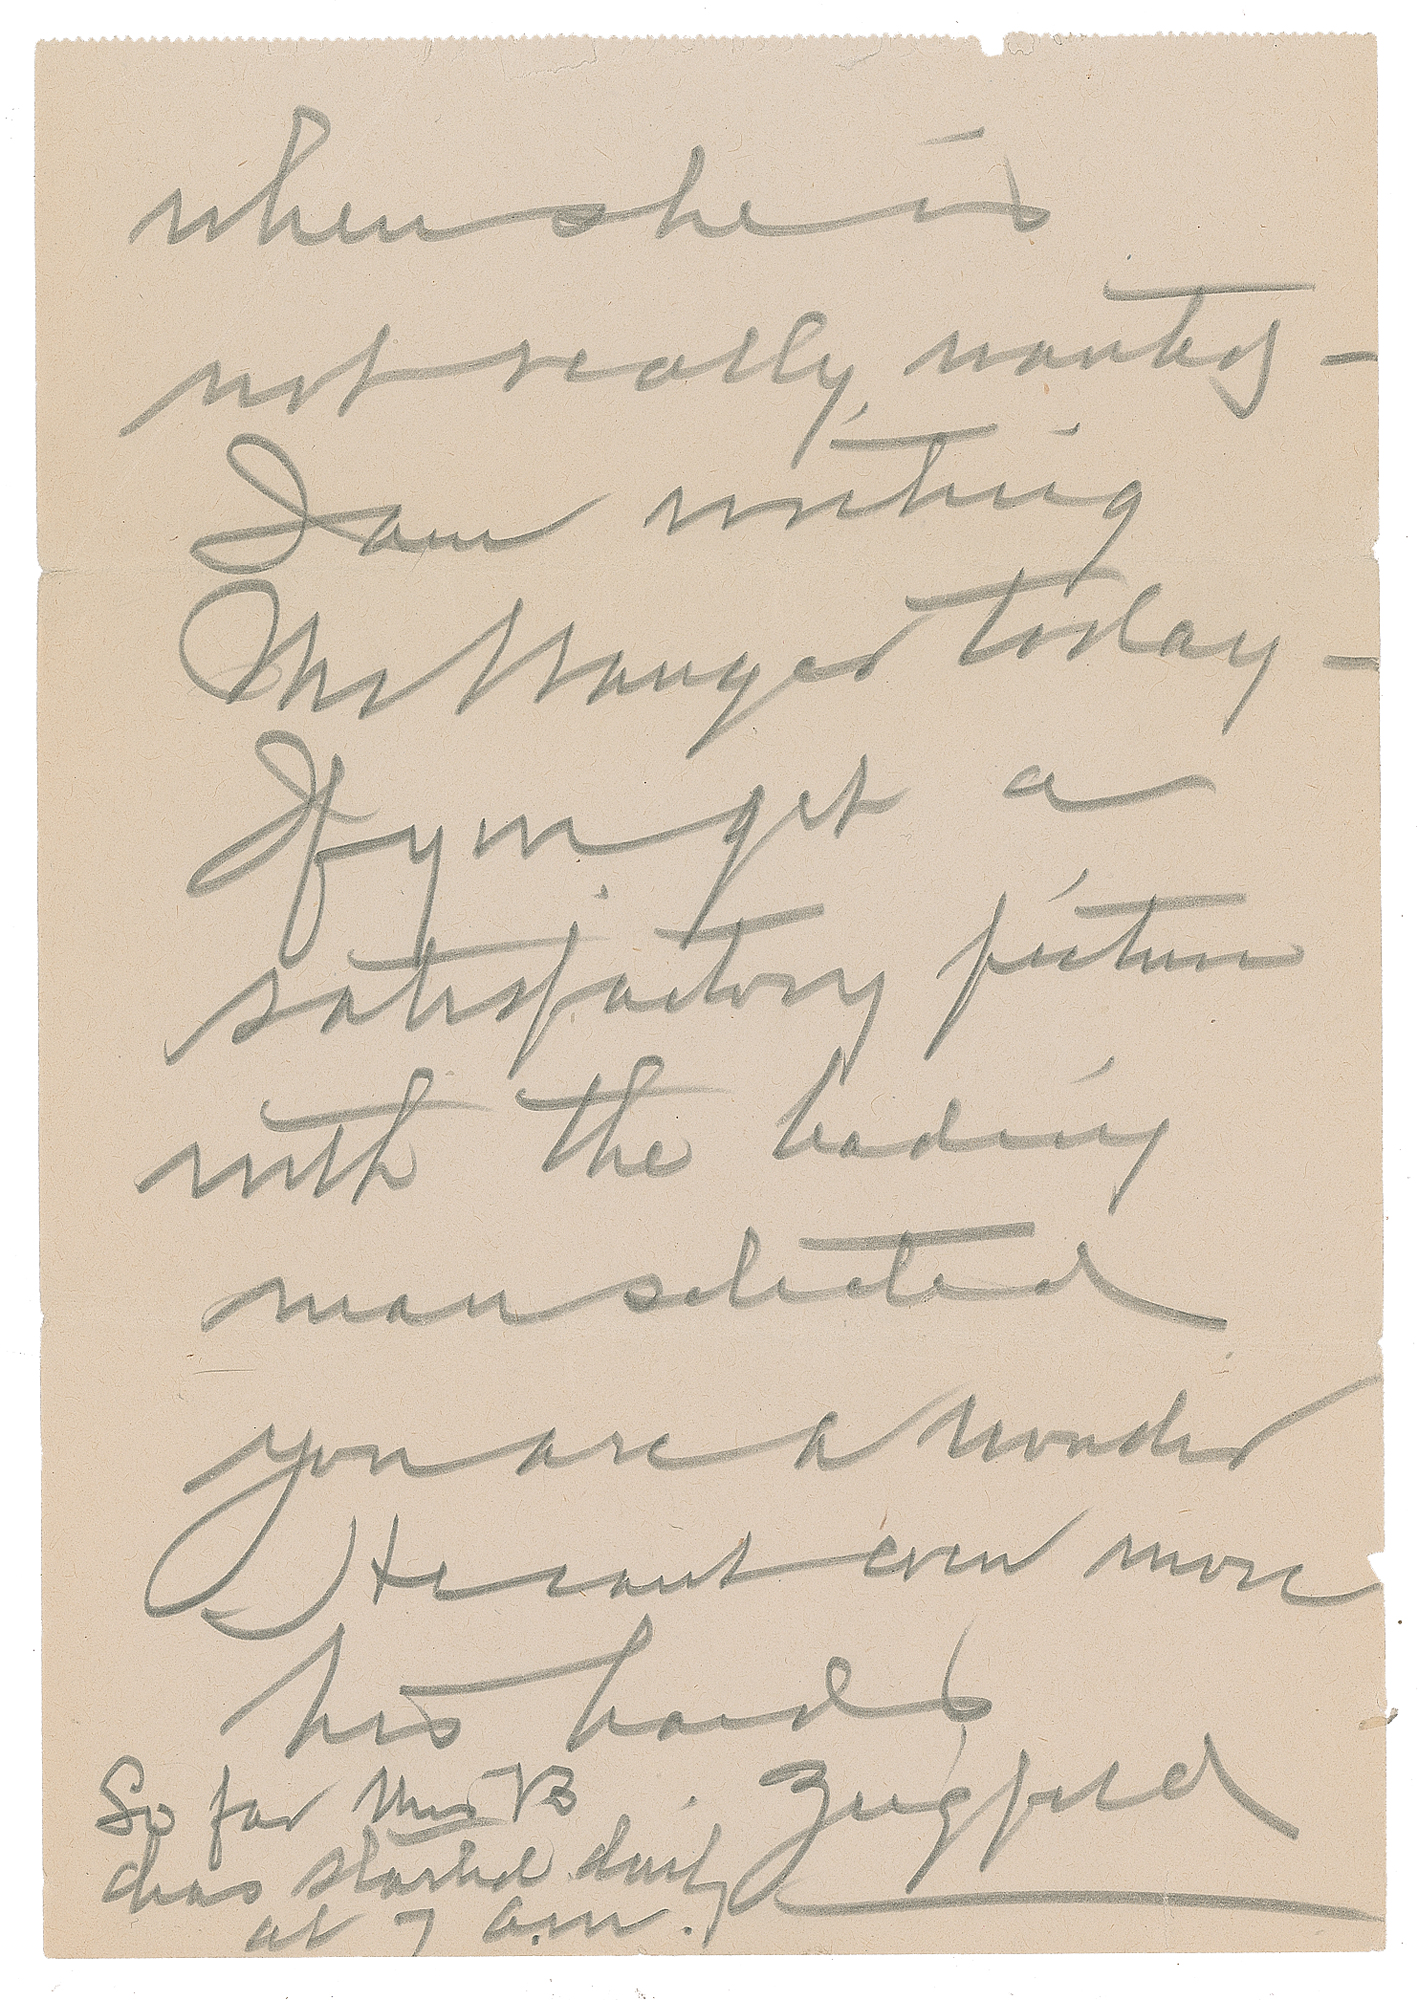 when she is
not really, wanted –
I am writing
Mr Wanger today –
If you get a
satisfactory picture
with the leading
man selected
you are a wonder
He cant even move
his hands
Ziegfeld
So far Miss B
has started daily
at 7 a.m.